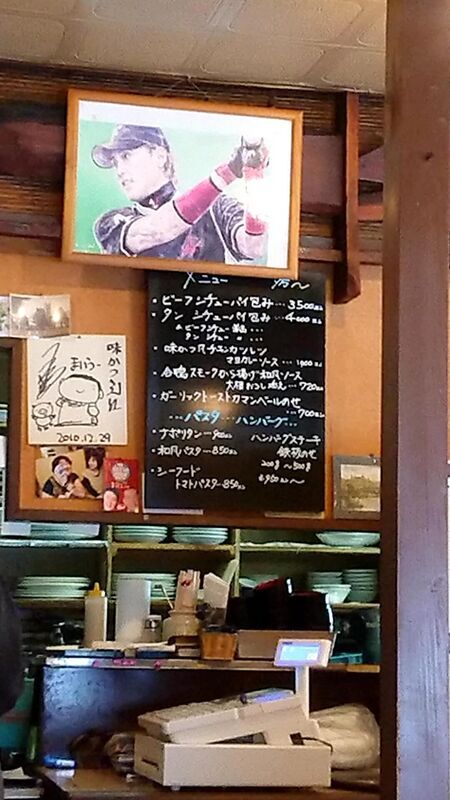 メニュー
・ビーフシチューパイ包み…3500
・タン シチューパイ包み…4000
味かつ風チキンカツレツ
マヨカレーソース…1000
・合鴨スモークから揚げ和風ソース
大根おろし添え…720
・ガーリックトーストカマンベールのせ
…700
…パスタ…ハンバーグ…
・ナポリタン…900
・和風パスタ…850
・シーフード
トマトパスタ…850
ハンバーグステーキ
鉄板のせ
200g～500g
味かつ
まいうー
2010.12.29